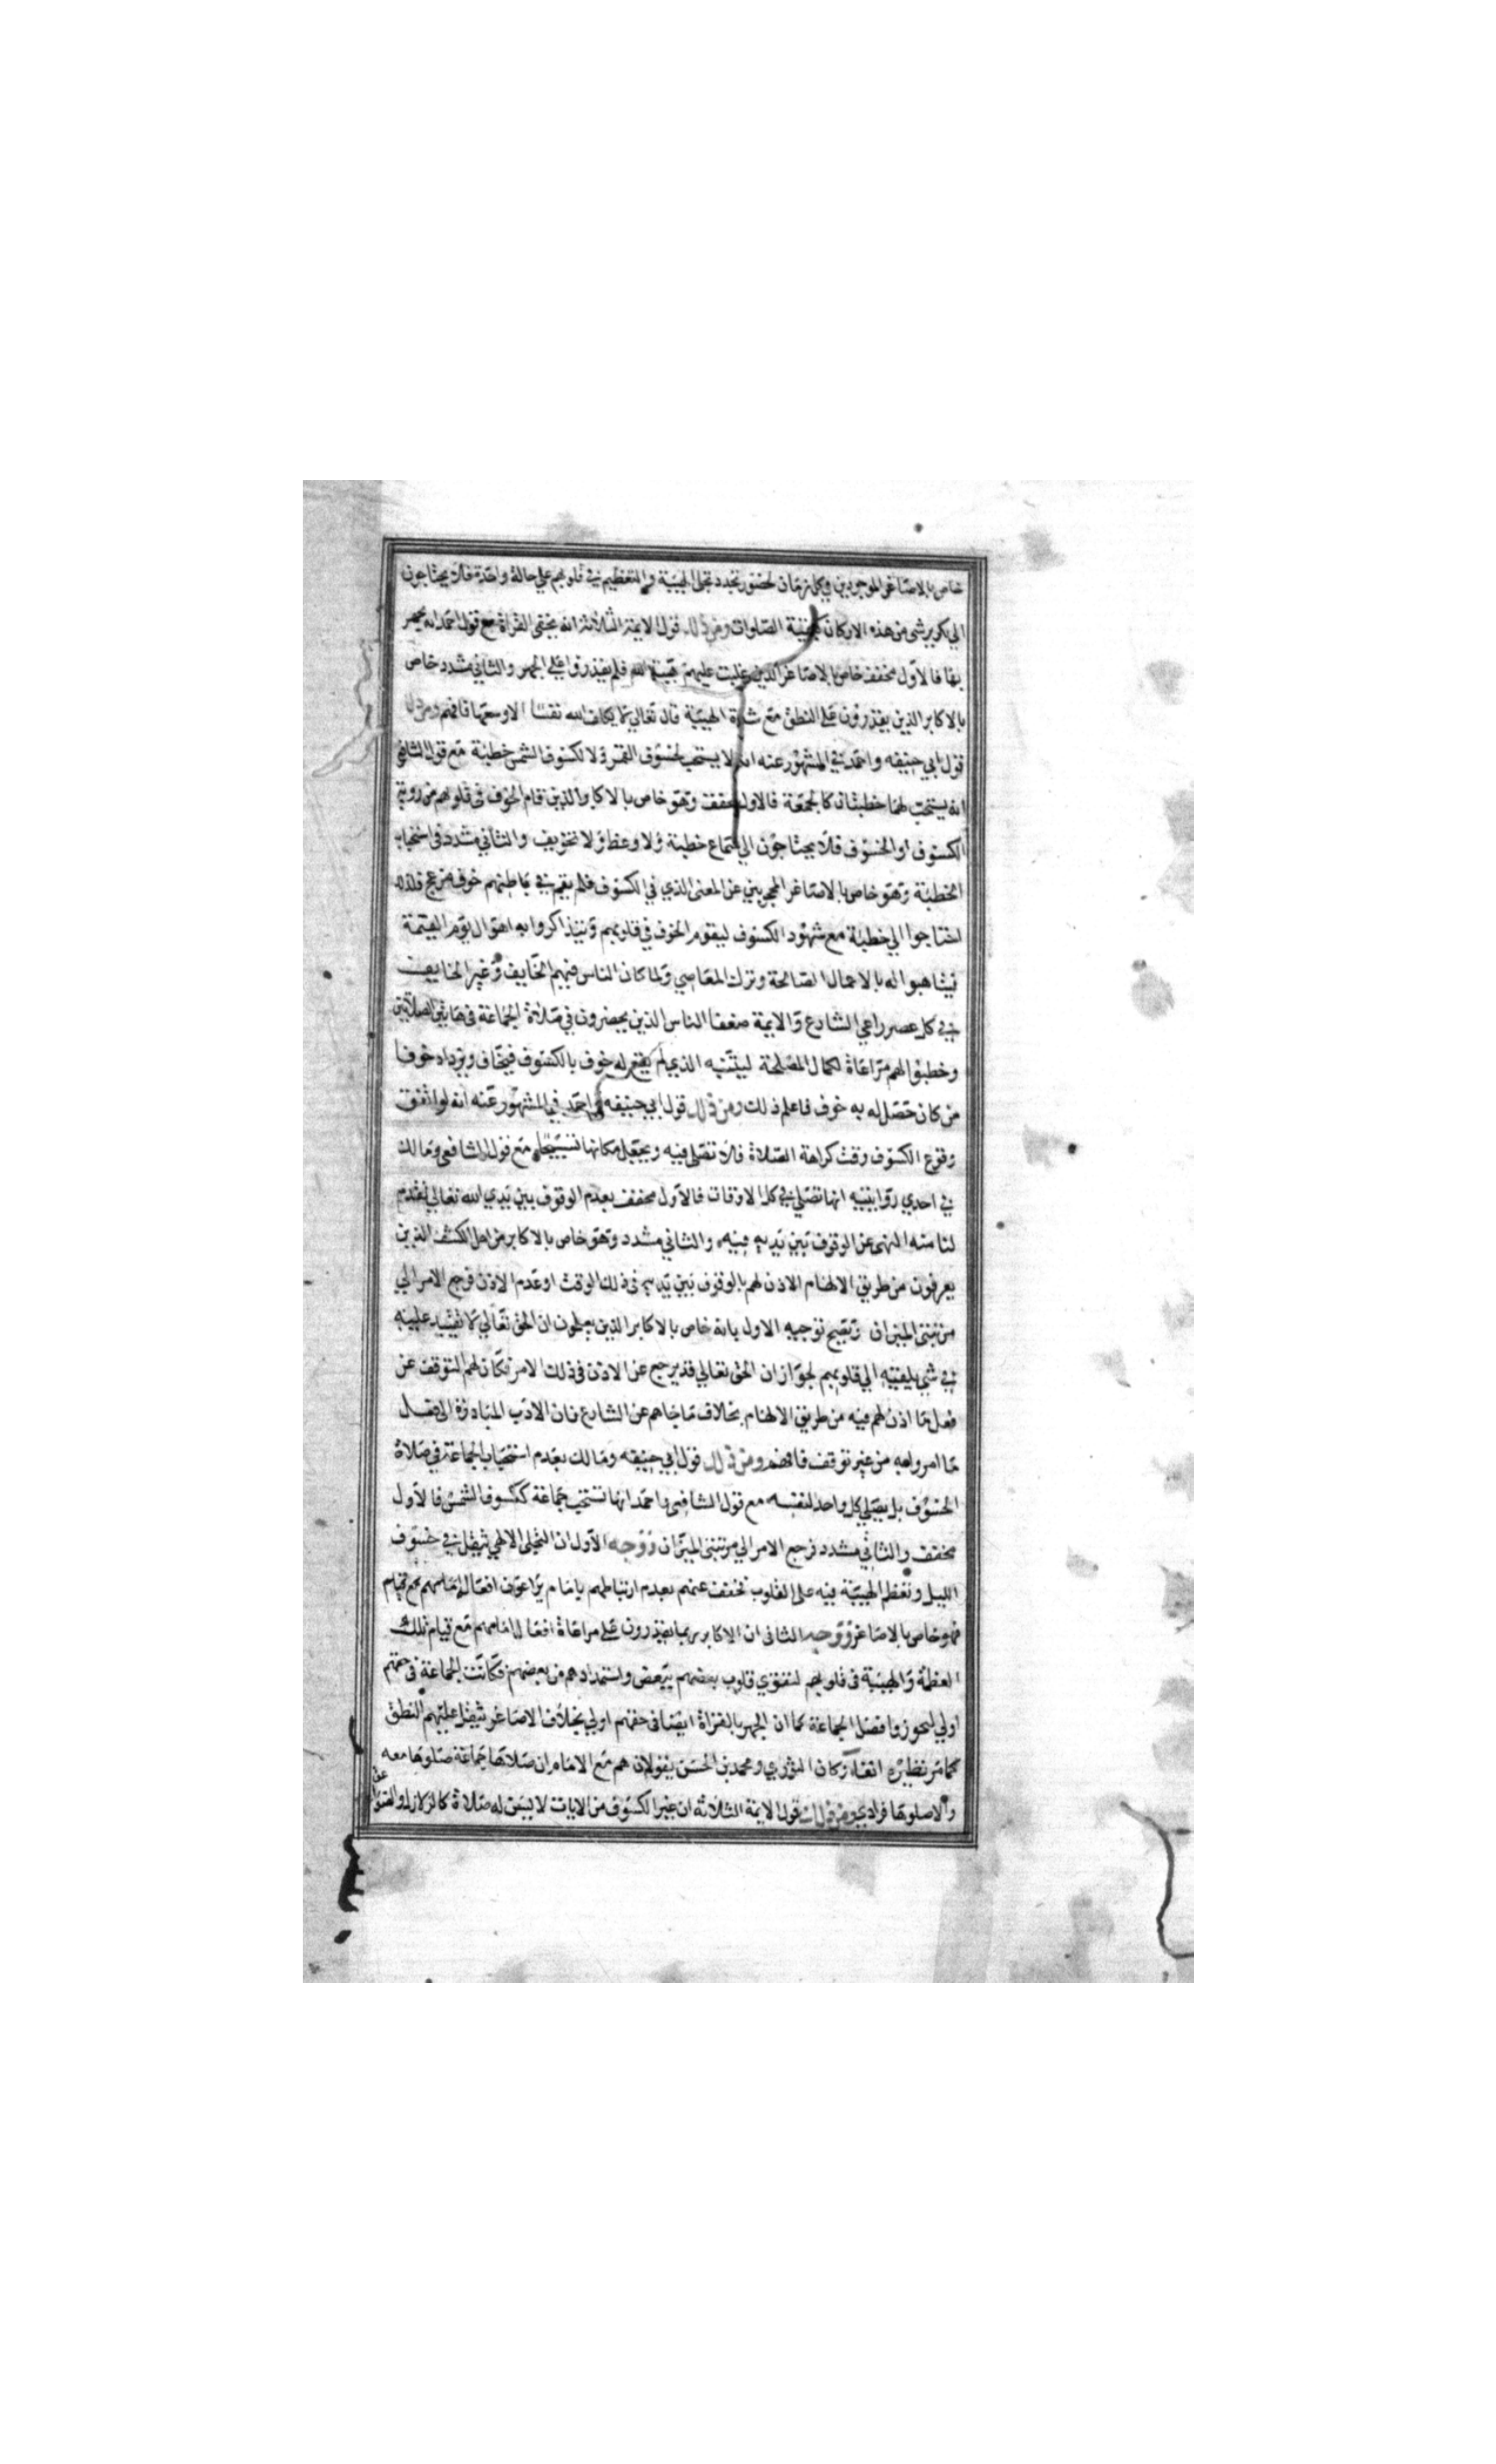 خاص بالاصاغر الموجودين في كل زمان لحضور تجدد تجلى الهيبة والتعظيم في قلوبهم علي حالة واحدة فلا يحتاجون
الي تكرير شي من هذه الاركان كبقية الصلوات ومن ذلك قول الايمة الثلاثة انه يخفى القراة مع قول احمد انه يجهر
بها فالاول مخفف خاص بالاصاغر الذين غلبت عليهم هيبة الله فلم يقدروا علي الجهر والثاني مشدد خاص
بالاكابر الذين يقدرون علي النطق مع شدة الهيبة قال تعالي لا يكلف الله نفسا الا وسعها فافهم ومن ذلك
قول ابي حنيفه واحمد في المشهور عنه انه لا يستحب لخسوف القمر ولا لكسوف الشمس خطبة مع قول الشافعي
انه يستحب لهما خطبتان كالجمعة فالاول مخفف وهو خاص بالاكابر الذين قام الخوف في قلوبهم من روية
الكسوف او الخسوف فلا يحتاجون الي سماع خطبة ولا وعظ ولا تخويف والثاني مشدد في استحباب
الخطبة وهو خاص بالاصاغر المحجوبين عن المعنى الذي في الكسوف فلم يقم في باطنهم خوف مزعج فلذلك
احتاجوا الي خطبة مع شهود الكسوف ليقوم الخوف في قلوبهم ويتذاكروا به اهوال يوم القيمة
فيتاهبوا له بالاعمال الصالحة وترك المعاصي ولما كان الناس فيهم الخايف وغير الخايف
في كل عصر راعي الشارع والايمة ضعفا الناس الذين يحضرون في صلاة الجماعة في هاتين الصلاتين
وخطبوا لهم مراعاة لكمال المصلحة ليتنبه الذي لم يقع له خوف بالكسوف فيخاف ويزداد خوفا
من كان حصل له به خوف فاعلم ذلك ومن ذلك قول ابي حنيفه واحمد في المشهور عنه انه لو اتفق
وقوع الكسوف وقت كراهة الصلاة فلا تصلى فيه ويجعل مكانها تسبيحا مع قول الشافعي ومالك
في احدي روايتيه انها تصلي في كل الاوقات فالاول مخفف بعدم الوقوف بين يدي الله تعالي لتقدم
لنا منه النهى عن الوقوف بين يديه فيه والثاني مشدد وهو خاص بالاكابر من اهل الكشف الذين
يعرفون من طريق الالهام الاذن لهم بالوقوف بين يديه في ذلك الوقت او عدم الاذن فرجع الامر الي
مرتبتى الميزان ويصح توجيه الاول بانه خاص بالاكابر الذين يعلمون ان الحق تعالي لا تقييد عليه
في شي يلقيه الي قلوبهم لجواز ان الحق تعالي قد يرجع عن الاذن في ذلك الامر فكان لهم التوقف عن
فعل ما اذن لهم فيه من طريق الالهام بخلاف ما جاهم عن الشارع فان الادب المبادرة الى فعل
ما امروا به من غير توقف فافهم ومن ذلك قول ابي حنيفه ومالك بعدم استحباب الجماعة في صلاة
الخسوف بل يصلي كل واحد لنفسه مع قول الشافعي واحمد انها تستحب جماعة ككسوف الشمس فالاول
مخفف والثاني مشدد فرجع الامر الي مرتبتي الميزان ووجه الاول ان التجلى الالهي ثقيل في خسوف
الليل وتعظم الهيبة فيه على القلوب فخفف عنهم بعدم ارتباطهم بامام يراعون افعال امامهم مع قيام
فهو خاص بالاصاغر ووجه الثاني ان الاكابر ربما يقدرون علي مراعاة افعال امامهم مع قيام تلك
العظمة والهيبة في قلوبهم لتقوي قلوب بعضهم ببعض واستمدادهم من بعضهم فكانت الجماعة في حقهم
اولي ليحوزوا فضل الجماعة كما ان الجهر بالقراة ايضا في حقهم اولي بخلاف الاصاغر ثقيل عليهم النطق
كما مر نظيره انفا وكان الثوري ومحمد بن الحسن يقولان هم مع الامام ان صلاها جماعة صلوها معه
والا صلوها فرادي ومن ذلك قول الايمة الثلاثة ان غير الكسوف من الايات لا يسن له صلاة كالزلازل والصواعق